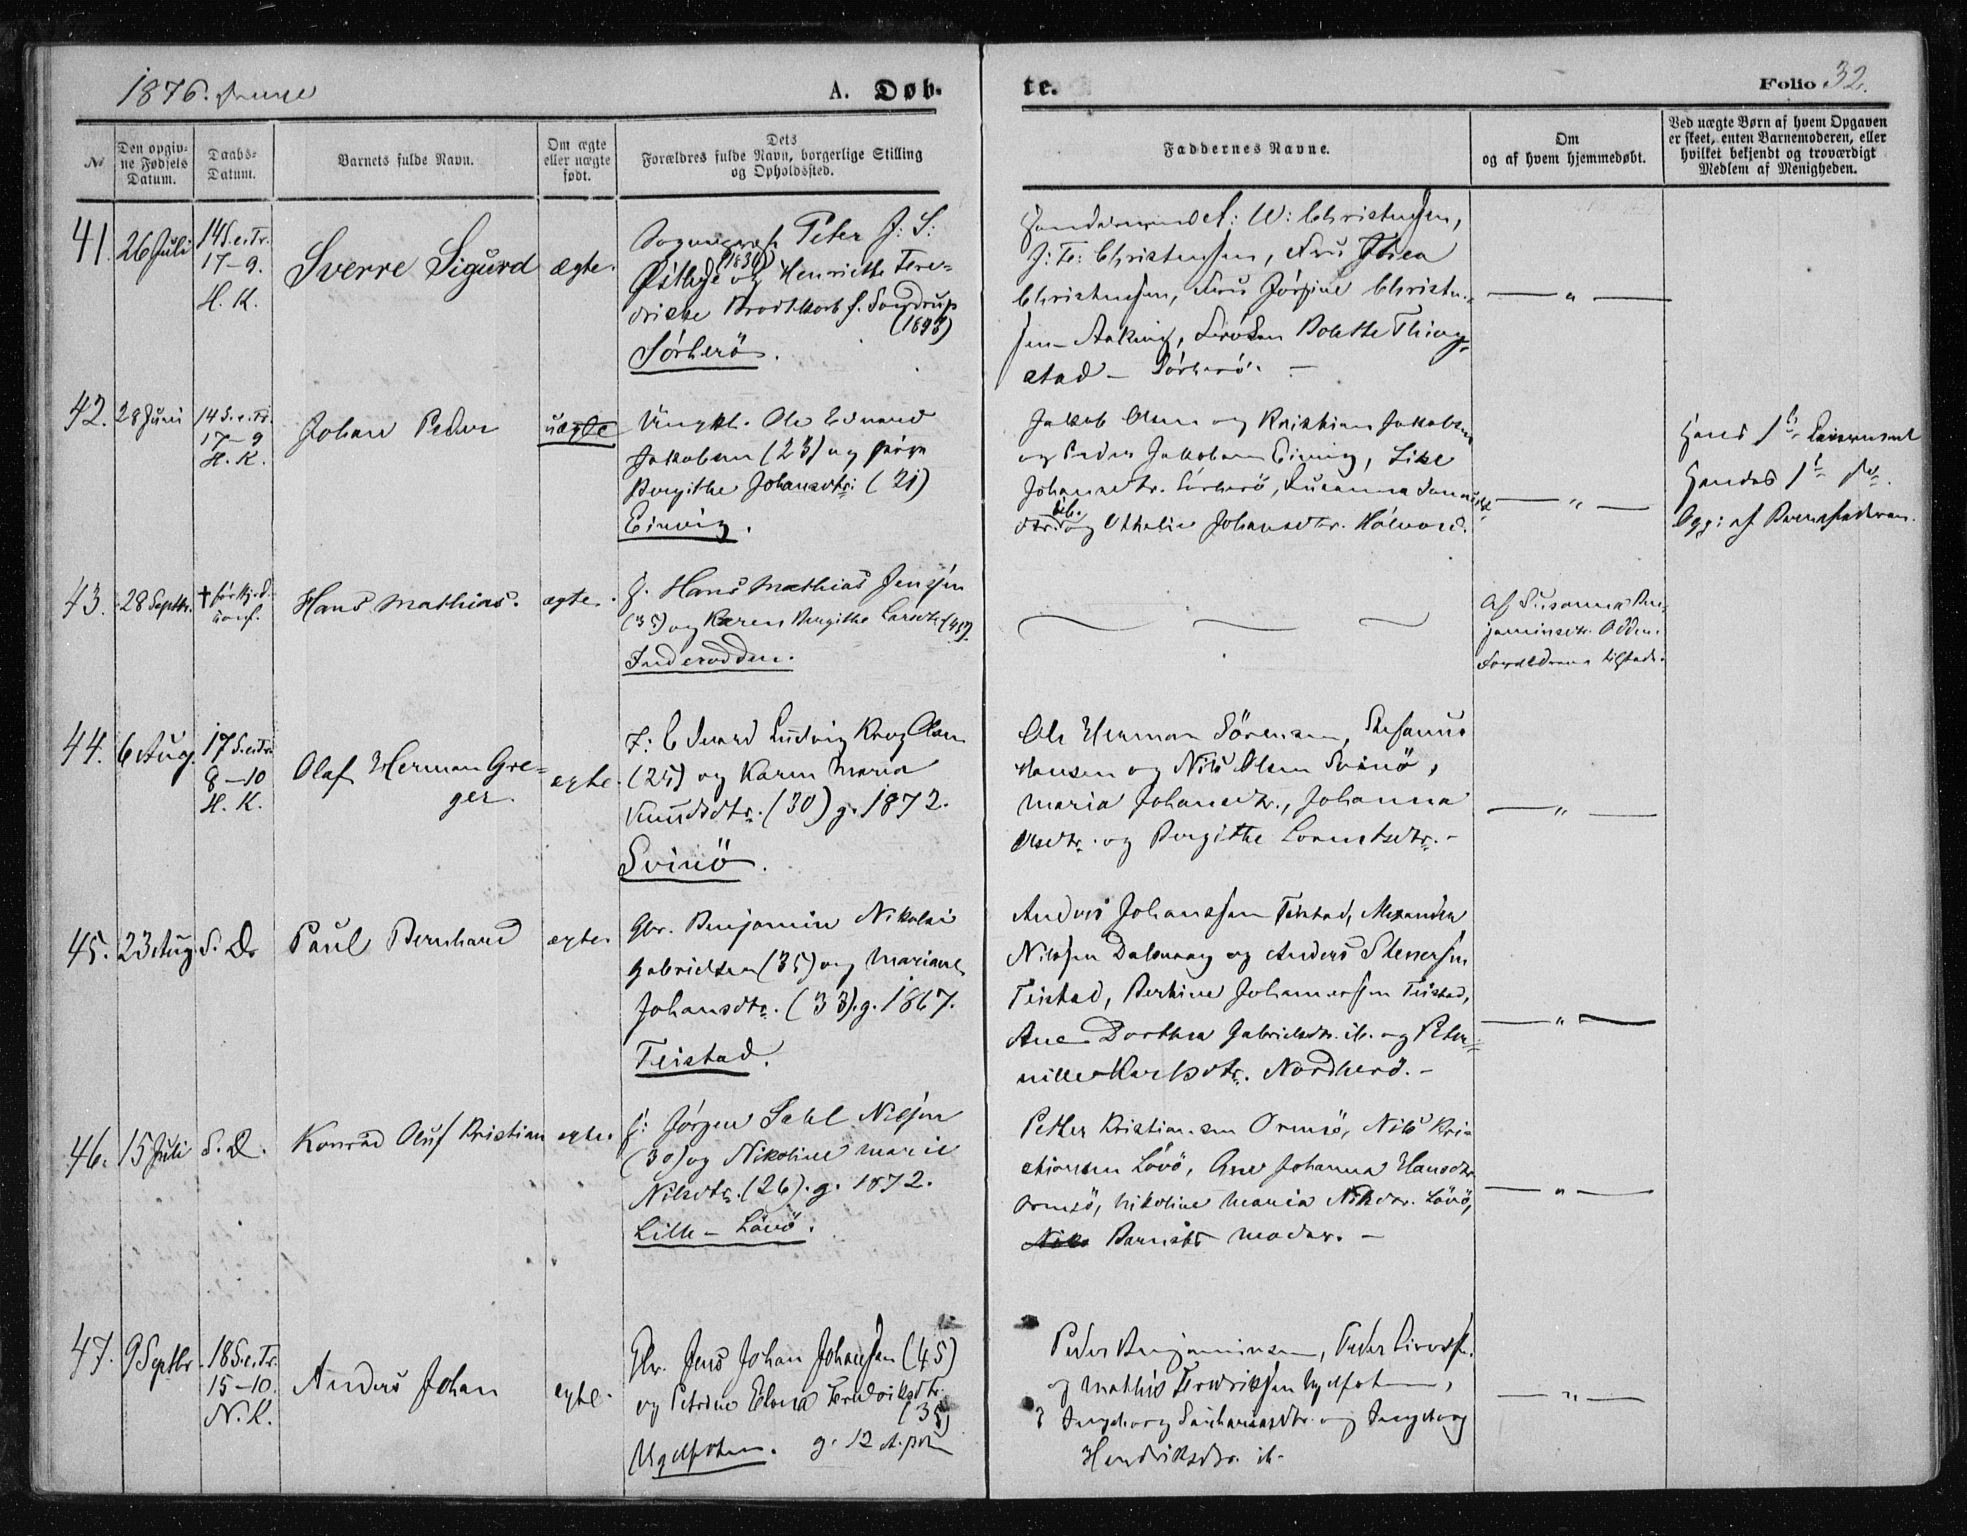 1876.
A. Døb-
te.
Folio 32.
No
Den opgiv-
ne Fødsels
Datum.
Daabs-
Datum.
Barnets fulde Navn.
Om ægte
eller uægte
født.
Dets
Forældres fulde Navn, borgerlige Stilling
og Opholdssted.
Faddernes Navne.
Om
og af hvem hjemmedøbt.
Ved uægte Børn af hvem Opgaven
er skeet, enten Barnemoderen, eller
hvilket bekjendt og troværdigt
Medlem af Menigheden.
41.
26 Juli
14 S. e. Tr.
17-9.
H. K.
Sverre Sigurd
ægte.
Sogneprest Peter J: S:
(1834)
og Henriette Fre-
drikke Brodtkorb f. Sondrup
Sørherö.
Handelsmand W: Christensen,
Christensen, Fru Thea
Christensen, Fru Jörgine Christen-
sen, Fröken Bolette Thing-
stad - Sörherö. -
— " —
42.
28 Juni
14 S. e. Tr.
17-9
H. K.
Johan Peder
uægte
Ungkl. Ole Edvard
Jakobsen (23) og
Bergithe Johansdtr: (21)
Einvig.
Jakob Olsen og Kristian Jakobsen
og Peder Jakobsen Einvig,
Johansdtr. Sörherö, Susanna
ib.
og Othelie Johansdtr.
— " —
Hans 1ste Leiermaal
Hendes 1ste do.
Opg: af Barnefaderen.
43.
28 Septbr.
†
Hans Mathias.
ægte.
Hans Mathias Jenssen
(35) og Karen Bergithe Larsdtr.
Inderodden.
Af Susanna Ben-
jaminsdtr. Odden.
44.
6 Aug.
17 S. e. Tr.
8-10
H. K.
Olaf Herman Gre-
ger.
egte.
Edvard Ludvig Olsen
(25) og Karen Maria
Knudsdtr. (30) g. 1872.
Svinö.
Ole Herman Sörensen, Stefanus
Hansen og Nils Olsen Svinö,
Maria Johansdtr., Johanna
Olsdtr. og Bergithe Lorentsdtr. -
— " —
45.
23 Aug.
S. D.
Paul Bernhard
ægte.
Gbr. Benjamin Nikolai
Gabrielsen (35) og Mariane
Johansdtr. (33). g. 1867.
Teistad.
Anders Johanssen Teistad,
Nilssen og Anders
Teistad, Johannessen Teistad,
Ane Dorthea Gabrielsdtr. ib. og Peter-
nille Karlsdtr. Nordherö. -
— " —
46.
15 Juli
S. D.
Konrad Oluf Kristian
egte.
Jörgen Nilsen
(30) og Nikoline Marie
Nilsdtr. (26). g. 1872.
Lille-Lövö.
Petter Kristiansen Ormsö, Nils Kri-
stiansen Lövö, Ane Johanna Hansdtr.
Ormsö, Nikoline Maria Nilsdtr. Lövö,
Barnets moder. -
— " —
47.
9 Septbr.
18 S. e. Tr.
15-10.
N. K.
Anders Johan
egte.
Gbr. Jens Johan Johansen (45)
og Petrine Elena Fredriksdtr.
(35)
g. 12
Peder Benjaminsen, Peder
og Mathis Fredriksen
Ingeborg og Ingeborg
Hendriksdtr. ib.
— " —